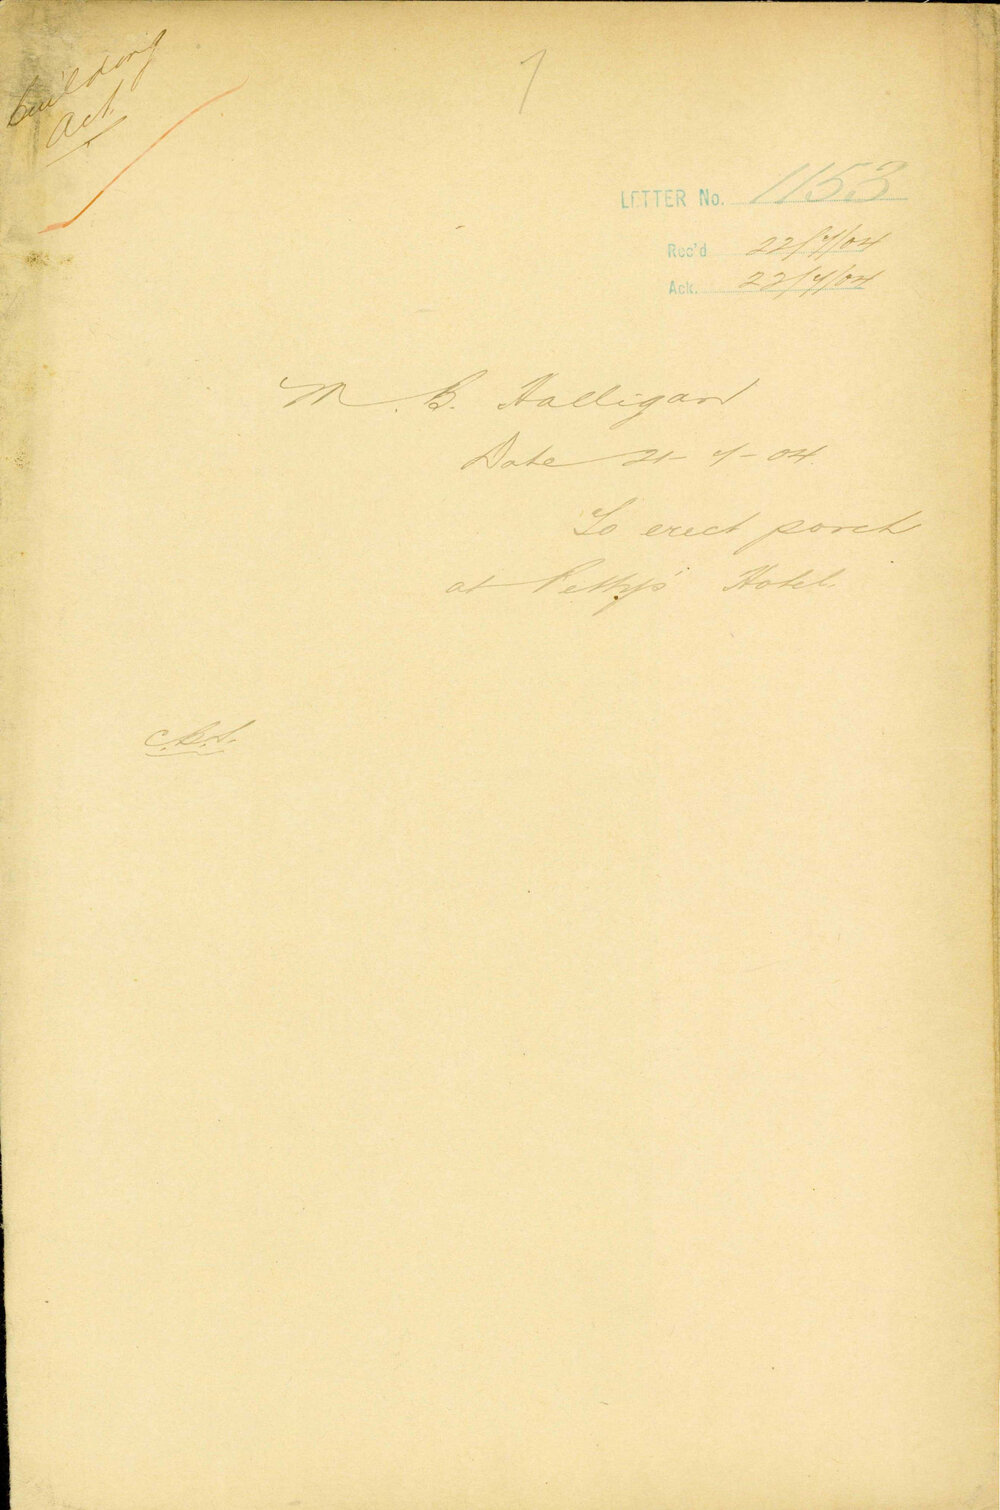 Building
Act
7
LETTER No. 1153
Rec'd 22/7/04
Ack. 22/7/04
M. B. Halligan
Date 21-7-04
To erect porch
at Petty's Hotel.
C.B.S.